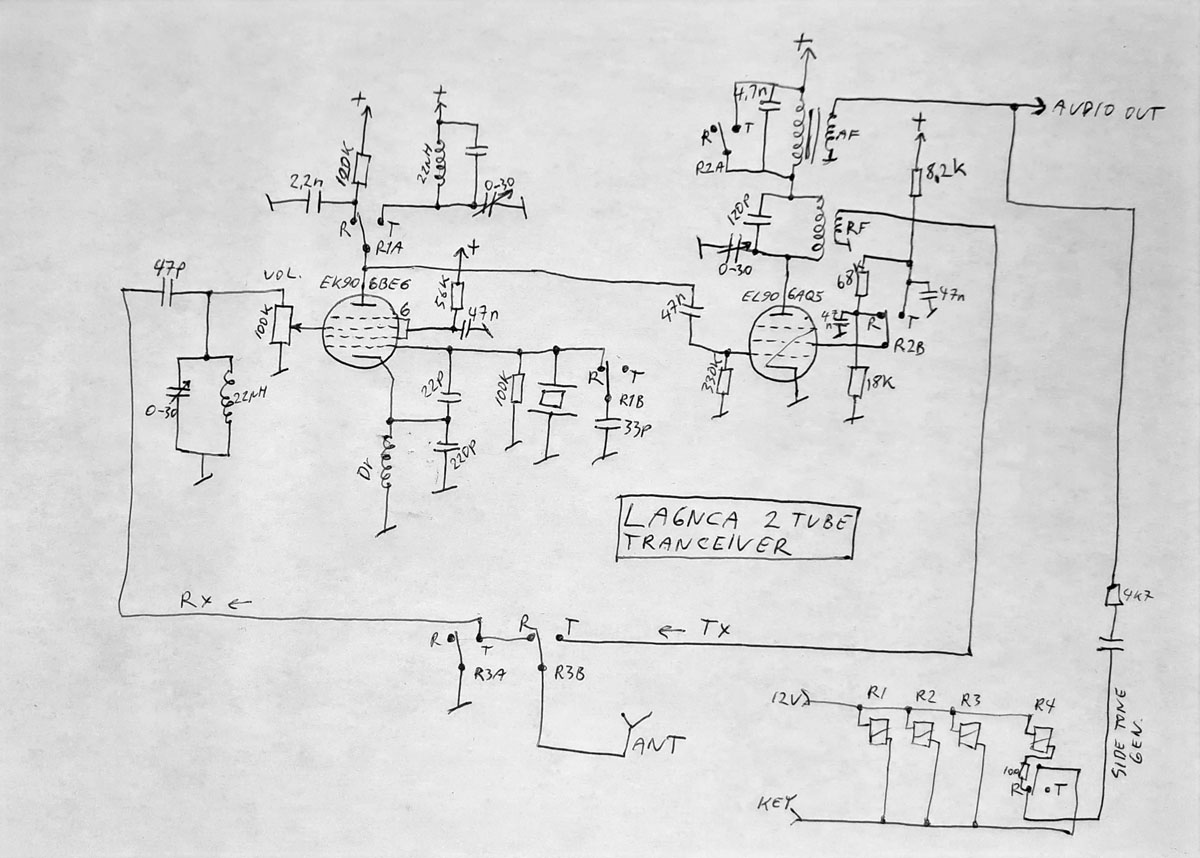 +
+
+
4,7n
R
T
R2A
AF
AUDIO OUT
+
8,2K
100K
22µH
2,2n
0-30
R
T
R1A
120P
RF
0-30
47P
VOL.
EK90 6BE6
+
56K
6
47n
100K
47n
EL90 6AQ5
68K
47n
47n
R
T
R2B
0-30
22µH
22P
100K
R
T
R1B
33P
330K
18K
Dr
220P
LA6NCA 2 TUBE
TRANCEIVER
RX ←
R
T
R3A
R
T
R3B
← TX
4K7
ANT
12V
R1
R2
R3
R4
SIDE TONE
GEN.
100
R
T
KEY